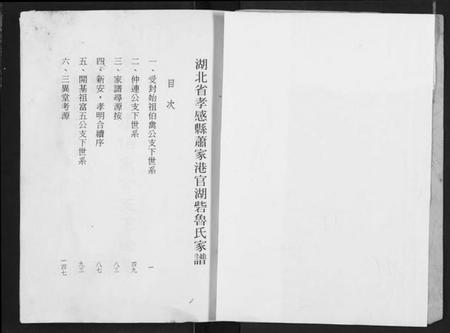 湖北省孝感縣蕭家港官湖砦魯氏家譜
目次
一、受封始祖伯禽公支下世系 一
二、仲連公支下世系 四九
三、家譜尋源按 八三
四、新安、孝明合續序 八七
五、開基祖富五公支下世系 九三
六、三異堂考源 一四七